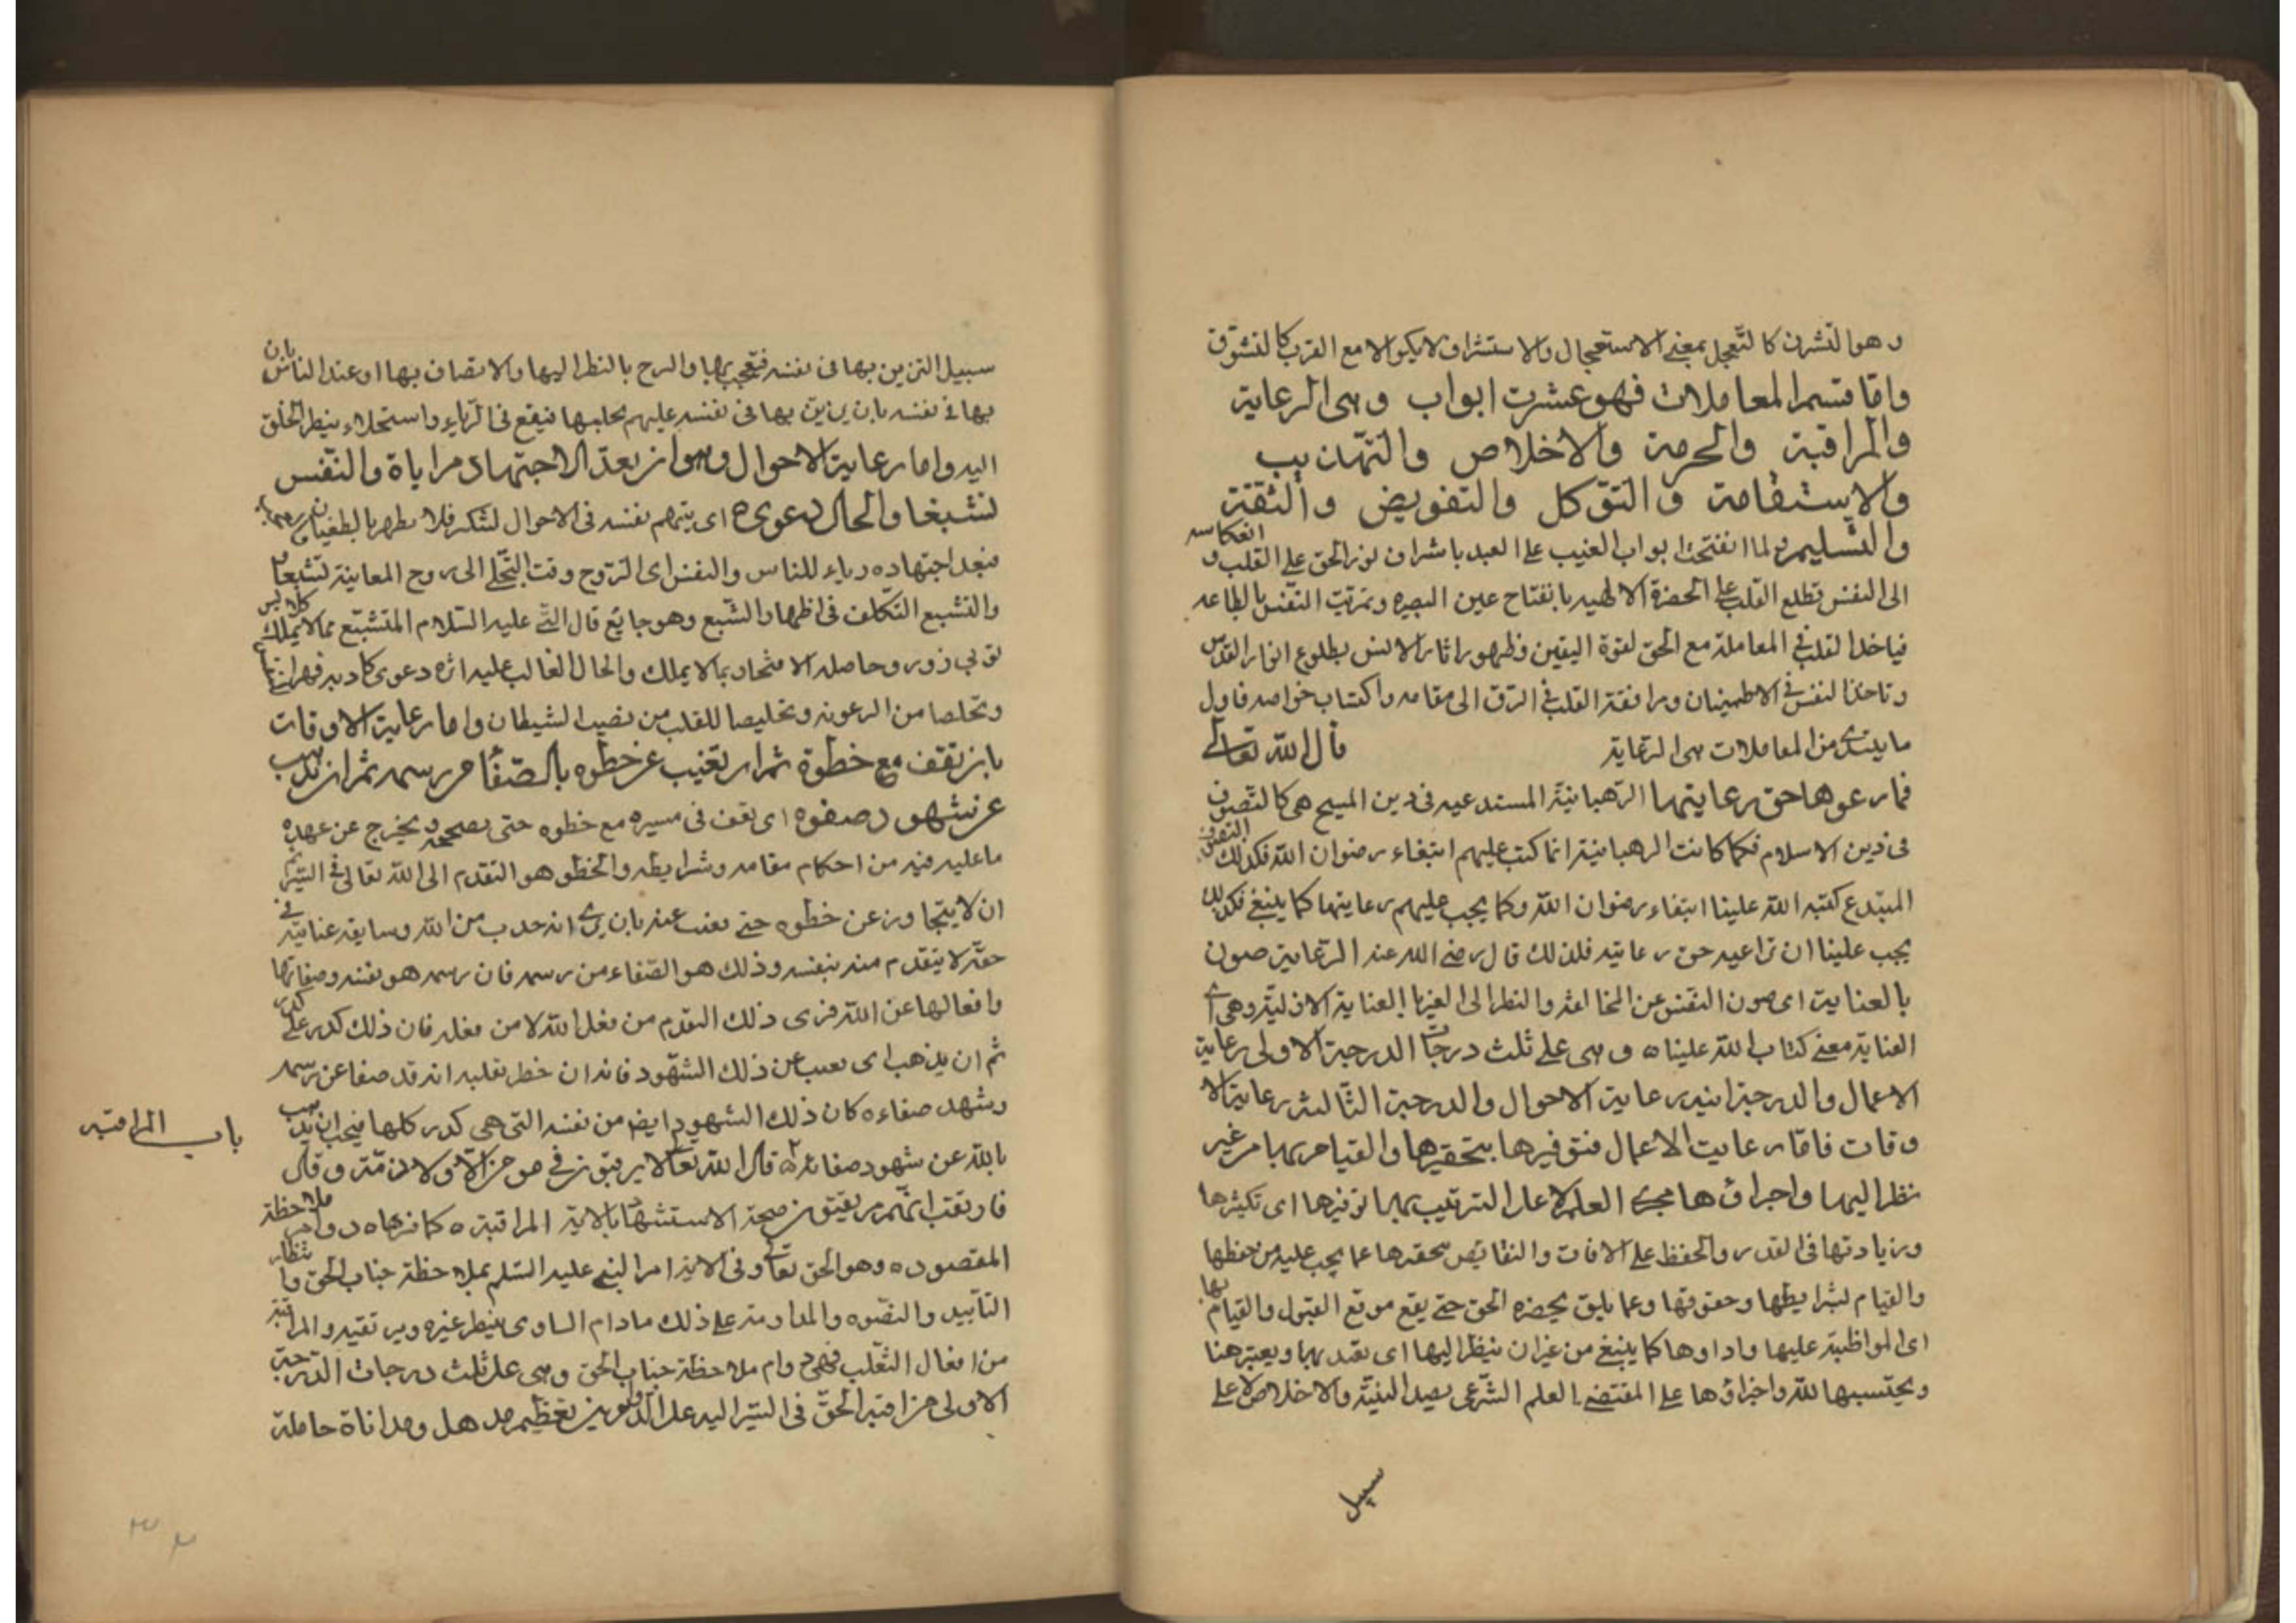 و هو التشرف كالتعجل بمعنى الاستعجال والاستشراف لا يكون الا مع القرب كالتشوق
واما قسم المعاملات فهو عشرت ابواب وهى الرعاية
والمراقبة والحرمة والاخلاص والتهذيب
والاستقامة والتوكل والتفويض والثقة
والتسليم ولما انفتحت ابواب الغيب على العبد باشراف نور الحق على القلب و انعكاسه
الى النفس تطلع القلب على الحضرة الالهيه بانفتاح عين البصيره وتمرنت النفس بالطاعه
فياخذ القلب فى المعاملة مع الحق لقوة اليقين وظهور اثار الانس بطلوع انوار القدس
وتاخذ النفس فى الاطمينان ومرافقة القلب فى الترقى الى مقامه واكتساب خواصه فاول
ما يبتدئ من المعاملات هى الرعاية قال الله تعالى
فما رعوها حق رعايتها الرهبانية المبتدعيه فى دين المسيح هى كالتصوف
فى دين الاسلام فكما كانت الرهبانية انما كتب عليهم ابتغاء رضوان الله فكذلك التصوف
المبتدع كتبه الله علينا ابتغاء رضوان الله وكما يجب عليهم رعايتها كما ينبغى فكذلك
يجب علينا ان نراعيه حق رعايته فلذلك قال رضى الله عنه الرعاية صون
بالعناية اى صون النفس عن المخالفة والنظر الى الغير بالعناية الازلية وهى
العناية معنى كتاب الله علينا ه وهى على ثلث درجات الدرجة الاولى رعاية
الاعمال والدرجة الثانيه رعاية الاحوال والدرجة الثالثة رعاية الا
وقات فاما رعايت الاعمال فتوفيرها بتحقيرها والقيام بها من غير
نظر اليها واجراؤها مجرى العلم لا على التزين بها توفيرها اى تكثيرها
وزيادتها فى القدر والحفظ على الافات والنقايص بتحقيرها عما يجب عليه من حفظها
والقيام بشرايطها وحقوقها وعما يليق بحضرة الحق حتى يقع موقع القبول والقيام بها
اى المواظبة عليها واداوها كما ينبغى من غير ان ينظر اليها اى يعتد بها ويعتبرها
ويحتسبها لله واجراؤها على المقتضى العلم الشرعى بصدق النية والاخلاص لا على
سبيل
سبيل التزين بها فى نفسه فيعجب بها والمرح بالنظر اليها والاتصاف بها او عند الناس بان
بها فى نفسه بان يزين بها فى نفسه عليهم بجلبها فيقع فى الرياء واستحلاء بنظر الخلق
اليه واما رعاية الاحوال وهو ان يعد الاجتهاد مراياة والنفس
تشبعا والحال دعوى ه اى يتهم نفسه فى الاحوال
فيعد اجتهاده رياء للناس والنفس اى الروح وقت التجلى الى روح المعاينة تشبعا
والتشبع التكلف فى اظهار الشبع وهو جايع قال النبى عليه السلام المتشبع بما لا يملك كلابس
ثوبى زور وحاصله الافتخار بما لا يملك والحال الغالب عليه اثره دعوى كاذبه قهرا لنفسه
وتخلصا من الرعونه وتخليصا للقلب من نصيب الشيطان واما رعاية الاوقات
بان تقف مع خطوة ثم ان تغيب عن خطوه بالصفا من رسمه ثم ان تذهب
عن شهود صفوه اى تقف فى مسيره مع خطوه حتى يصححه ويخرج عن عهده
ما عليه فيه من احكام مقامه وشرايطه والخطو هو التقدم الى الله تعالى فى السير ثم
ان لا يتجاوز عن خطوه حتى يغيب عنه بان يرى انه جذب من الله وسابقة عناية فى
حقه لا يتقدم منه بنفسه وذلك هو الصفاء من رسمه فان رسمه هو نفسه وصفاتها
وافعالها عن الله فيرى ذلك التقدم من فعل الله لا من فعله فان ذلك كدر على كدر
ثم ان يذهب اى يغيب عن ذلك الشهود فانه ان خطر بقلبه انه قد صفا عن رسمه
وشهد صفاءه كان ذلك الشهود ايضا من نفسه التى هى كدر كلها فيجب ان يذهب
بالله عن شهود صفائه قال الله تعالى لا يرقبون فى مومن الا ولا ذمة وقال
فارتقب انهم مرتقبون صحة الاستشهاد بالاية المراقبة ه دوام ملاحظة
المقصود ه وهو الحق تعالى وفى الاية امر النبى عليه السلم بملاحظة جناب الحق وانتظار
التاييد والنصره والمداومة على ذلك ما دام
من افعال القلب فهى دوام ملاحظة جناب الحق وهى على ثلث درجات الدرجة
الاولى مراقبة الحق فى السير اليه على الدوام بين تعظيم مذهل ومداناة حاملة
باب المراقبه